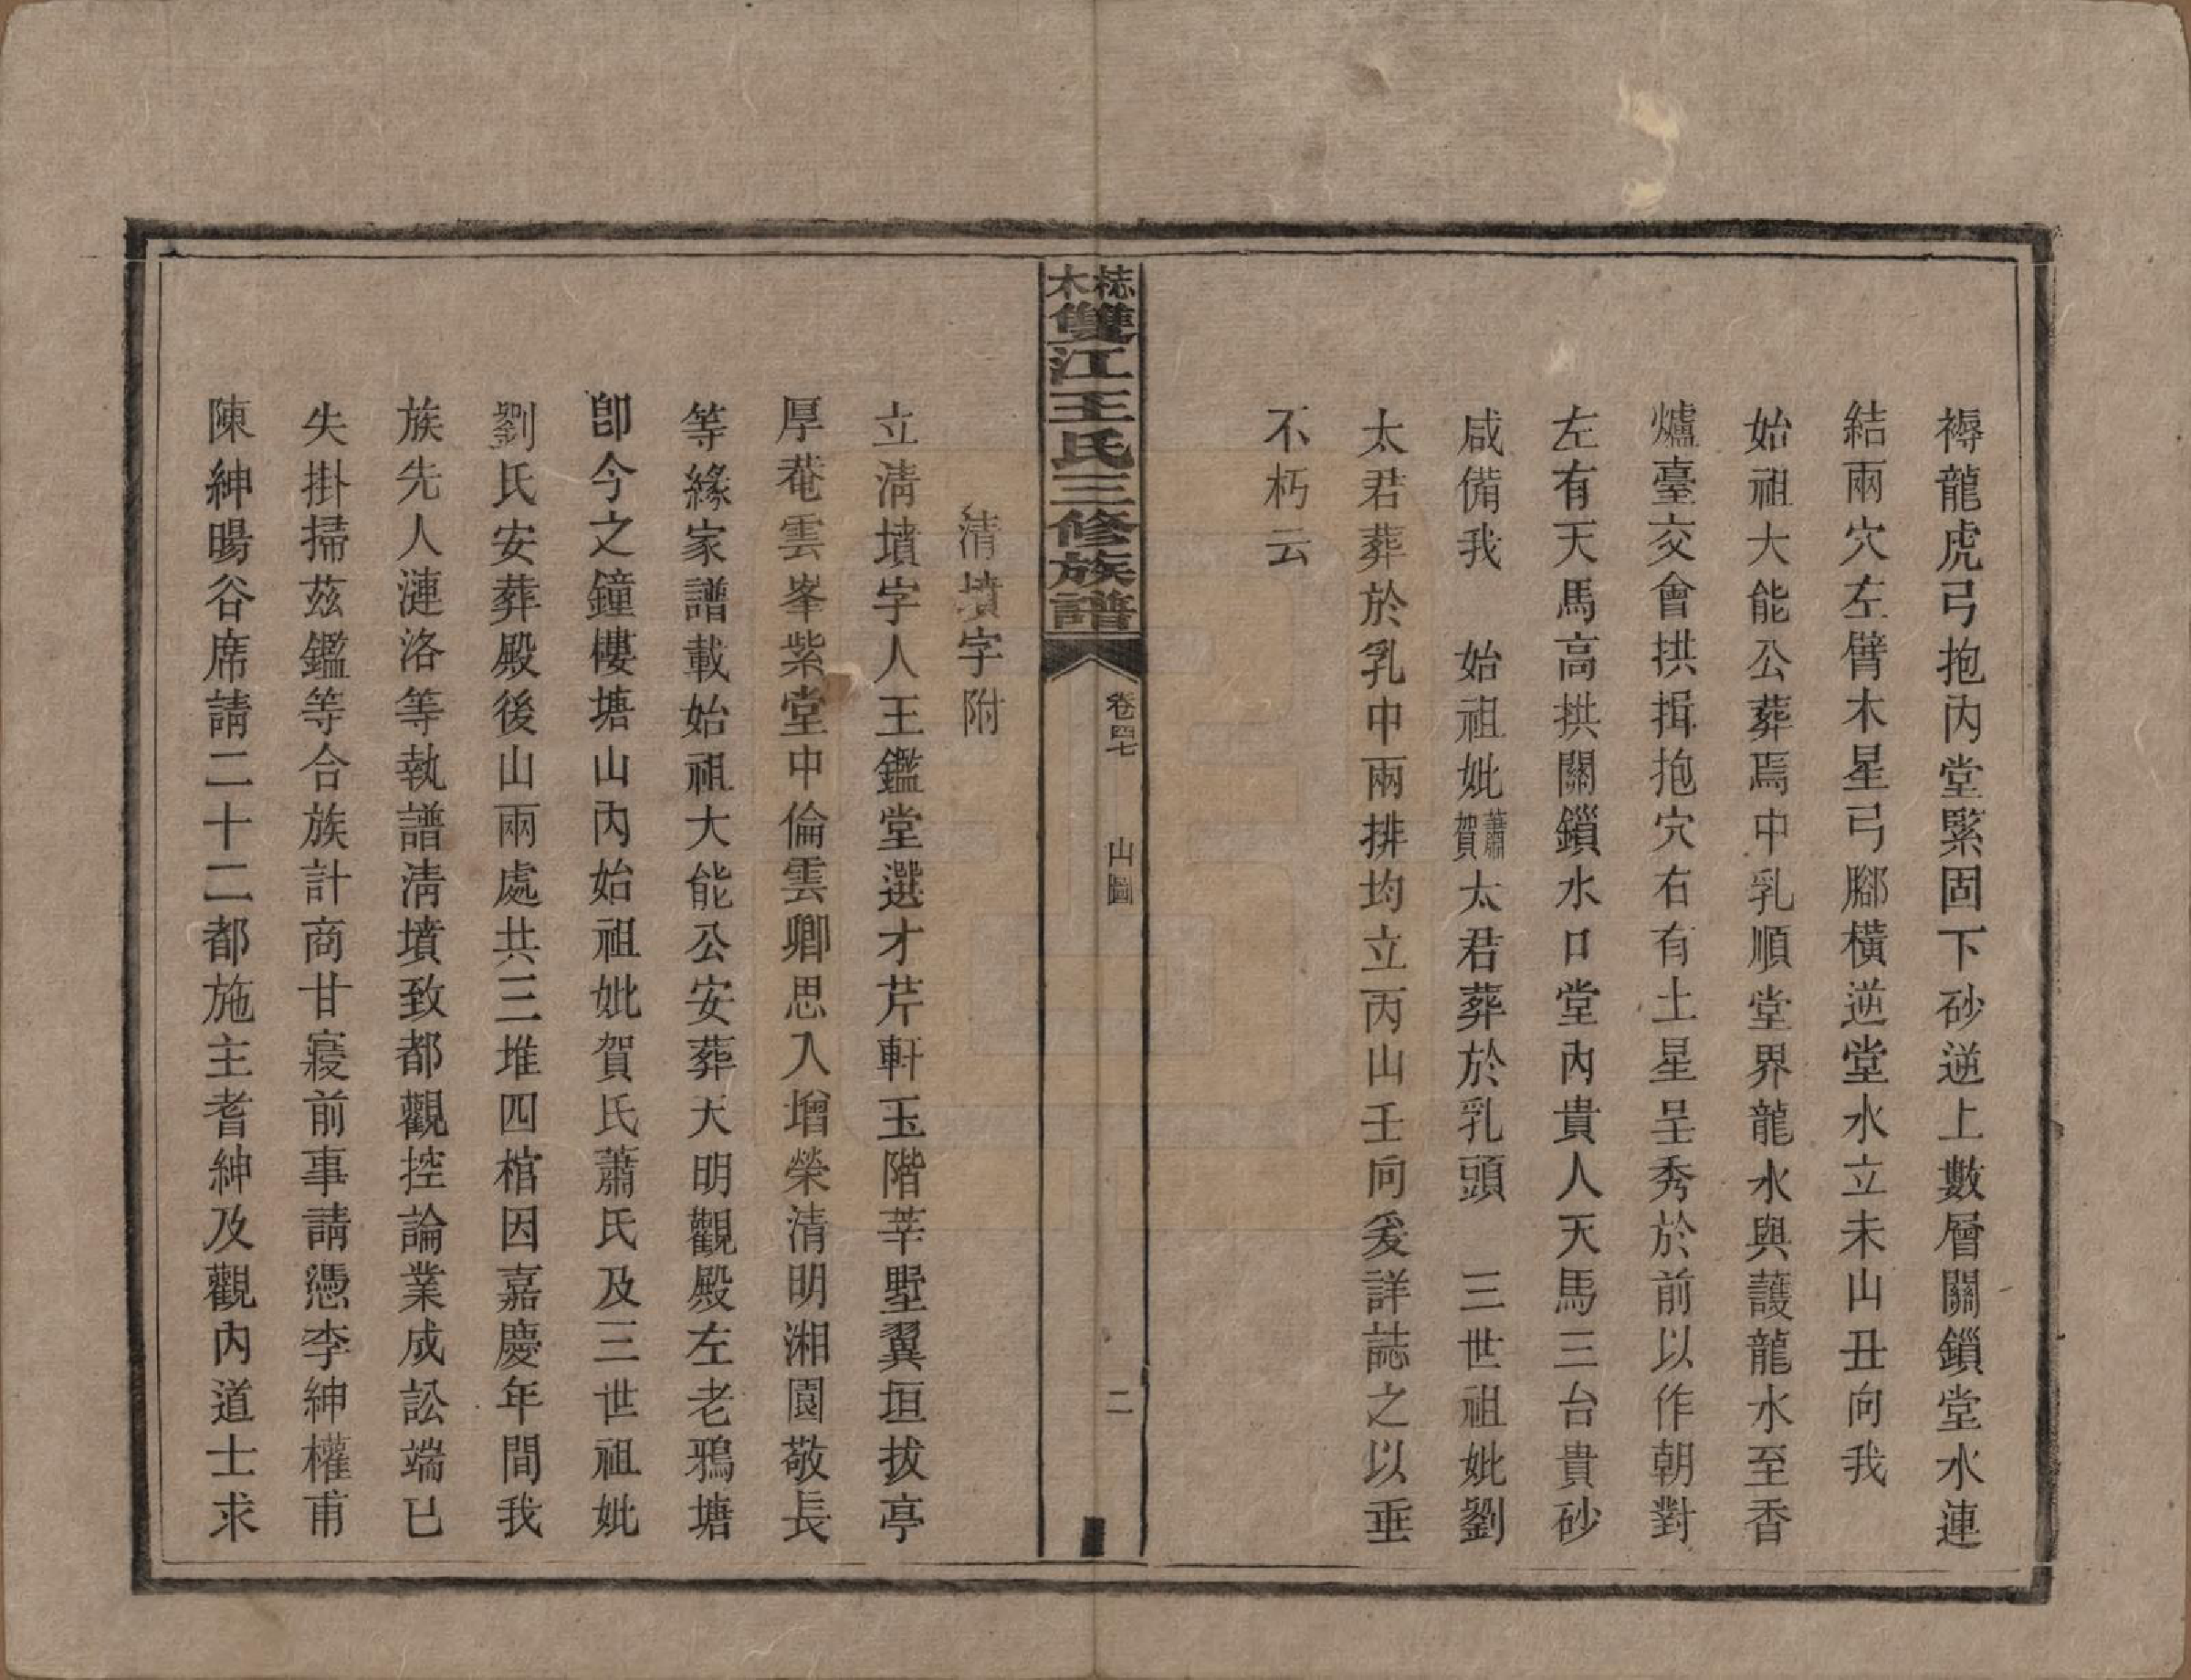 褥龍虎弓抱內堂緊固下砂逆上數層關鎖堂水連
結兩穴左臂木星弓腳橫逆堂水立未山丑向我
始祖大能公葬焉中乳順堂界龍水與護龍水至香
爐臺交會拱揖抱穴右有土星呈秀於前以作朝對
左有天馬高拱關鎖水口堂內貴人天馬三台貴砂
咸備我　始祖妣蕭賀太君葬於乳頭　三世祖妣劉
太君葬於乳中兩排均立丙山壬向爰詳誌之以垂
不朽云
梽木雙江王氏三修族譜　卷四七　山圖　二
清墳字附
立清墳字人王鑑堂選才芹軒玉階莘墅翼垣拔亭
厚菴雲峯紫堂中倫雲卿思入增榮清明湘園敬長
等緣家譜載始祖大能公安葬天明觀殿左老鴉塘
卽今之鐘樓塘山內始祖妣賀氏蕭氏及三世祖妣
劉氏安葬殿後山兩處共三堆四棺因嘉慶年間我
族先人漣洛等執譜清墳致都觀控論業成訟端已
失掛掃茲鑑等合族計商甘寢前事請憑李紳權甫
陳紳暘谷席請二十二都施主耆紳及觀內道士求